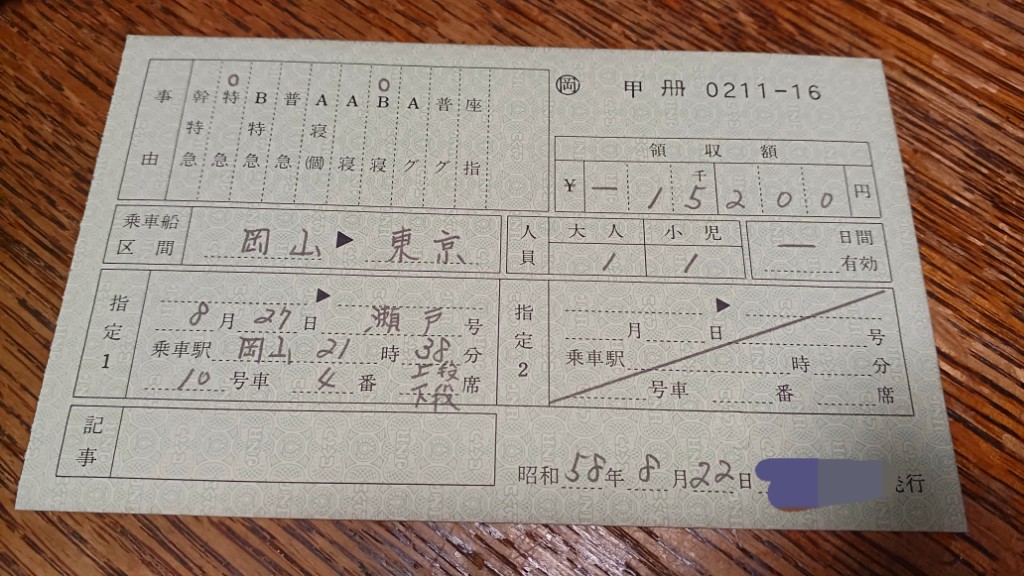 ㊞岡 甲 冊 0211-16
事由
幹特急
特急
B特急
普急
A寝(個)
A寝
B寝
Aグ
普グ
座指
領収額
千
¥ ー 1 5 2 0 0 円
乗車船区間 岡山 ▶ 東京
人員 大人 小児
1 1
ー 日間
有効
指定1
▶
8月27日 瀬戸 号
乗車駅 岡山 21時38分
10号車 4番 上段 下段 席
指定2
▶
月 日 号
乗車駅 時 分
号車 番 席
記事
昭和58年8月22日 発行